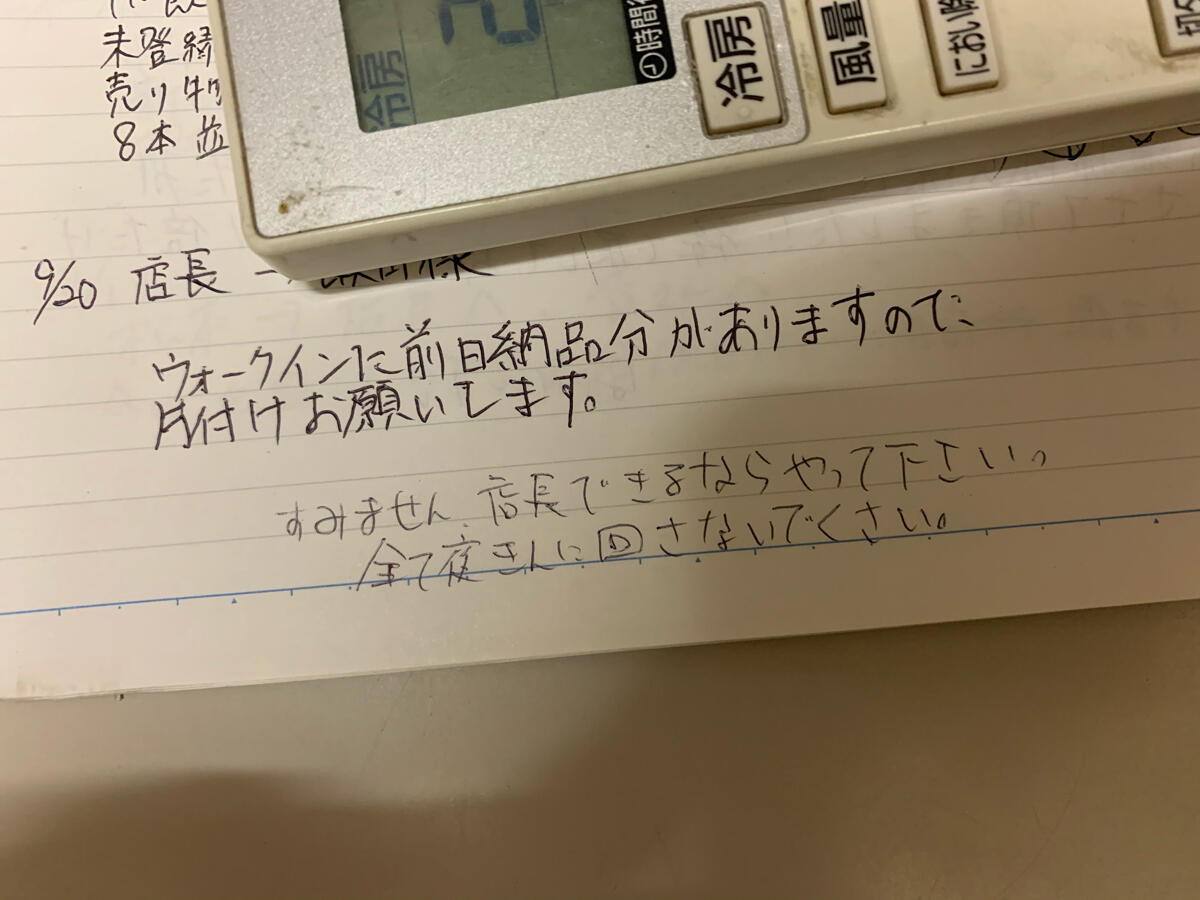 未登録
売り物
8本並
冷房
2
時間
冷房
風量
におい除
切
9/20 店長 → 様
ウォークインに前日納品分がありますので、
片付けお願いします。
すみません、店長できるならやって下さいっ。
全て夜きんに回さないでくさい。